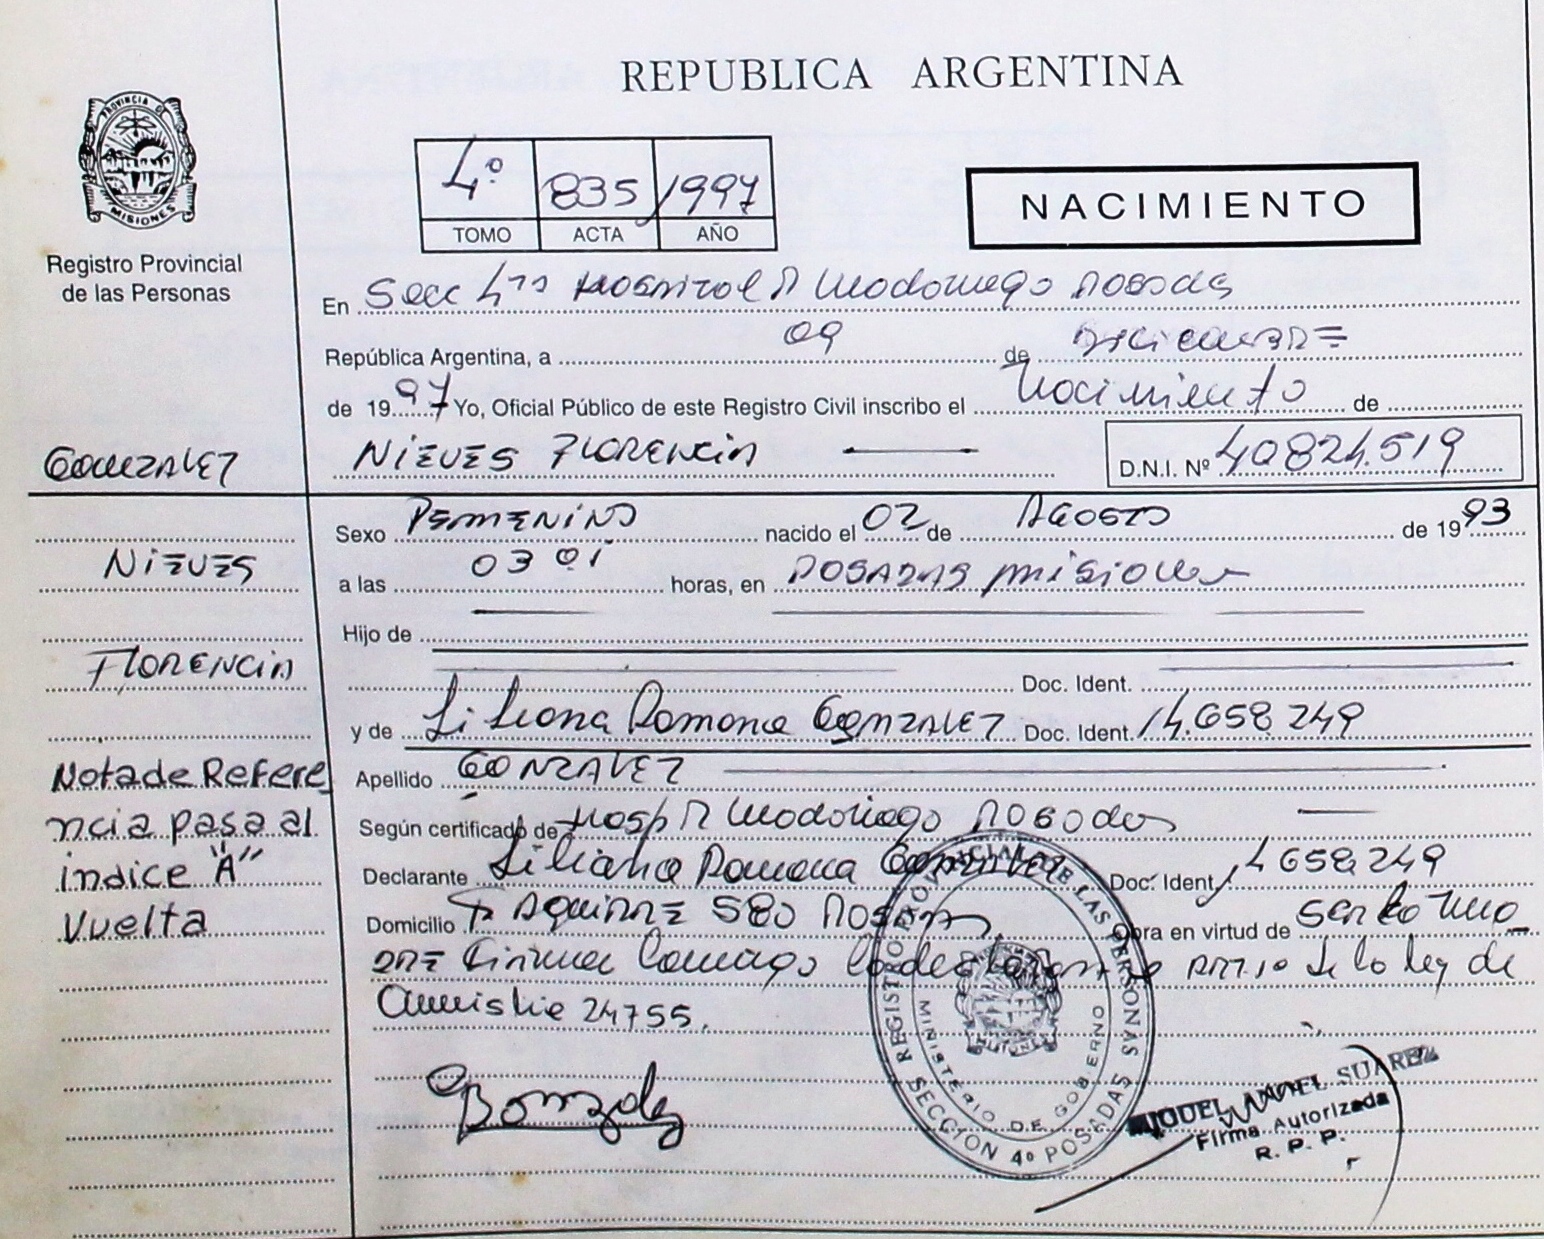 REPUBLICA ARGENTINA
PROVINCIA DE
MISIONES
Registro Provincial
de las Personas
4º 835 1997
TOMO ACTA AÑO
NACIMIENTO
En Secc 4ta Hospital R Madariaga Posadas
República Argentina, a 09 de Diciembre
de 1997 Yo, Oficial Público de este Registro Civil inscribo el Nacimiento de
GONZALEZ NIEVES FLORENCIA D.N.I. Nº 40824.519
Sexo FEMENINO nacido el 02 de AGOSTO de 1993
NIEVES a las 03 01 horas, en POSADAS misiones
Hijo de
FLORENCIA Doc. Ident.
y de Liliana Ramona GONZALEZ Doc. Ident. 14.658 249
Nota de Refere Apellido GONZALEZ
ncia pasa al Según certificado de Hosp R Madariaga Posadas
indice "A" Declarante Liliana Ramona Gonzalez Doc. Ident. 14658249
Vuelta Domicilio AGUIRRE 580 POSADAS Obra en virtud de
la declarante de la ley de
Amnistia 24755.
Gonzalez
REGISTRO PROVINCIAL DE LAS PERSONAS
MINISTERIO DE GOBIERNO
SECCION 4º POSADAS
MIGUEL SUAREZ
Firma Autorizada
R. P. P.